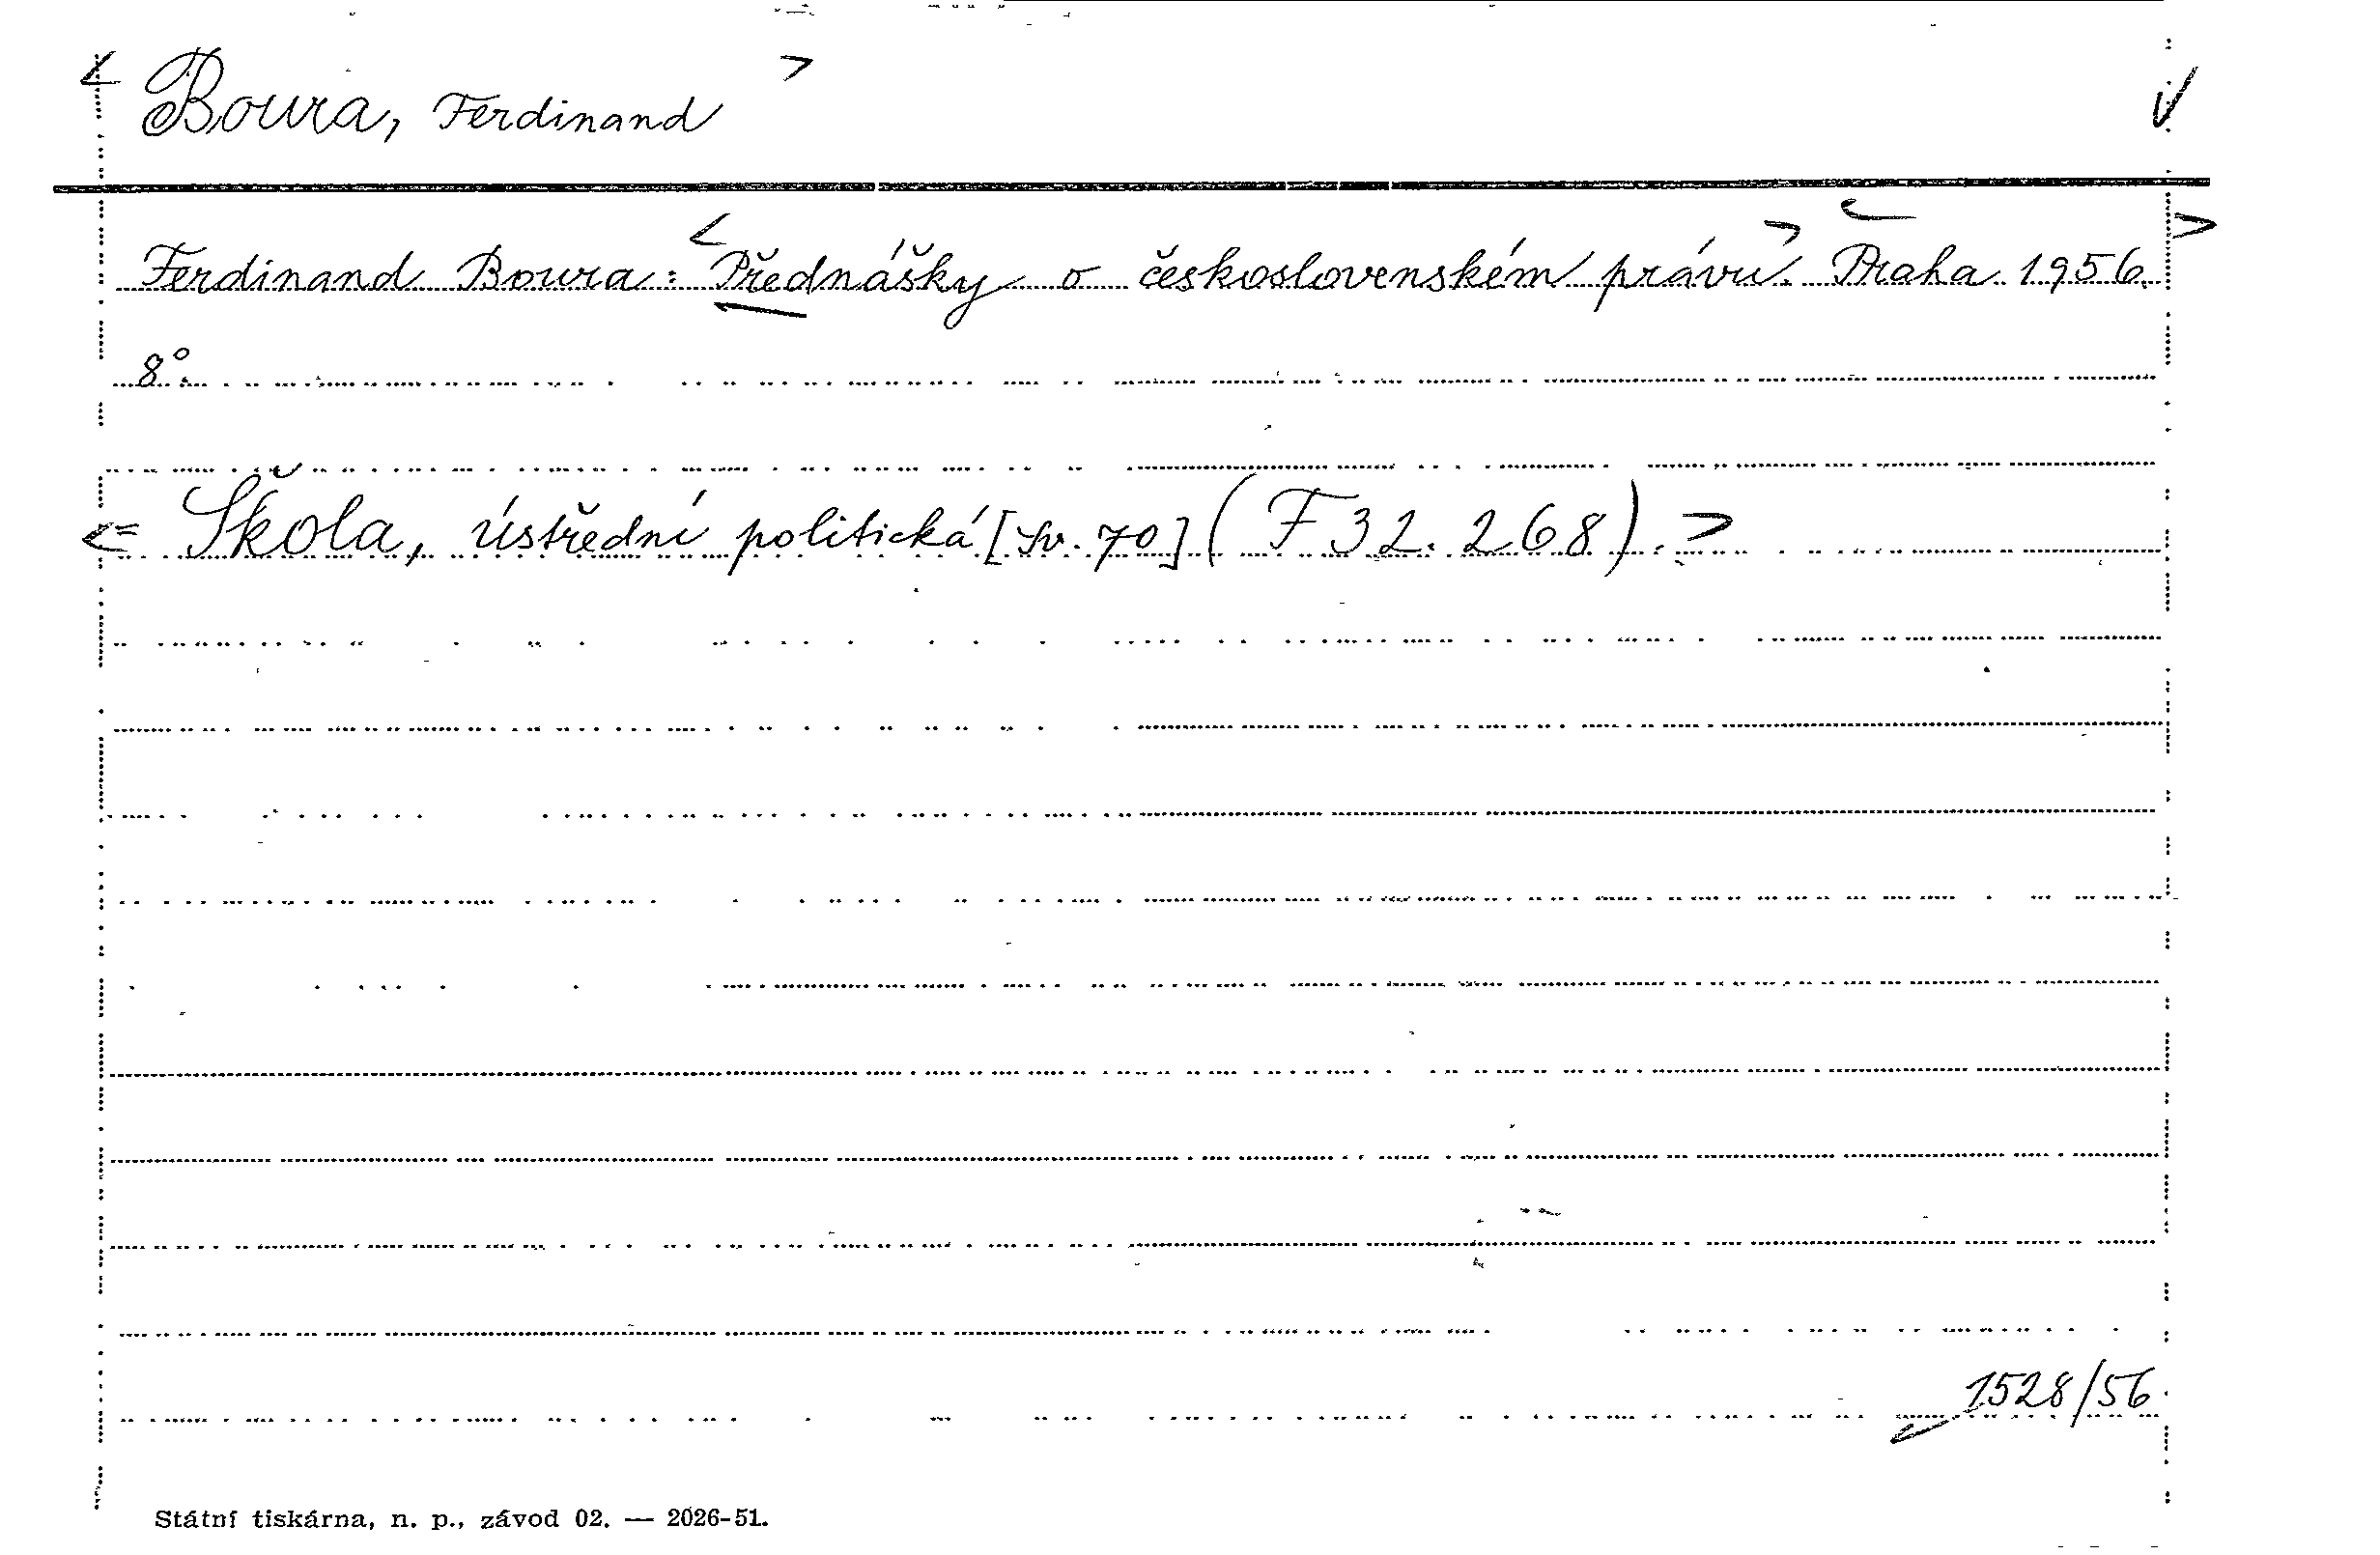 < Boura, Ferdinand >
Ferdinand Boura: <Přednášky o československém právu>. Praha 1956. >
8°.
<= Škola, ústřední politická [sv. 70] (F 32.268). >
1528/56
Státní tiskárna, n. p., závod 02. — 2026-51.